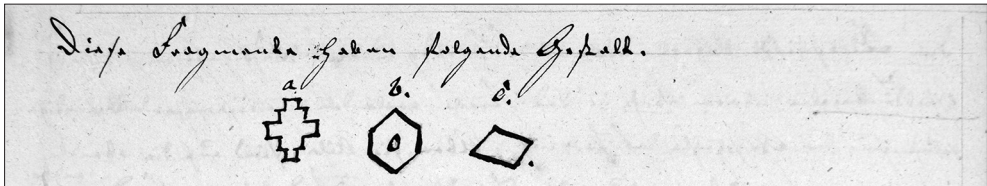 Diese Fragmente haben folgende Gestalt.
a. b. c.